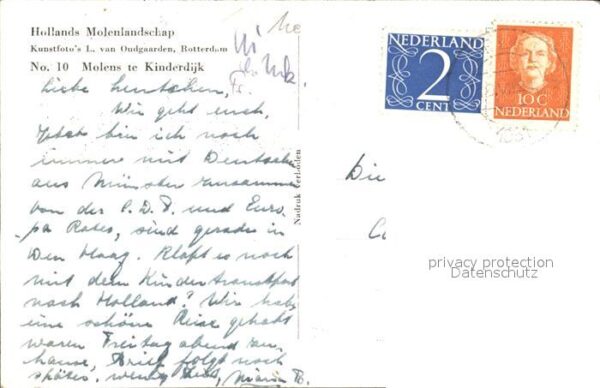 Hollands Molenlandschap
Kunstfoto's L. van Oudgaarden, Rotterdam
No. 10 Molens te Kinderdijk
Liebe
Wie geht euch,
Jetzt bin ich noch
immer mit Deutsche
aus Münster zusammen
von der und Euro-
pa Rates, sind gerade in
Den Haag. Klapt es noch
mit dem Kindertransport
nach Holland? Wir habe
eine schöne Reise gehabt
waren Freitag abend zu
hause, Brief folgt noch
später.
Nadruk verboden
NEDERLAND
2
CENT
10 C
NEDERLAND
Die
privacy protection
Datenschutz